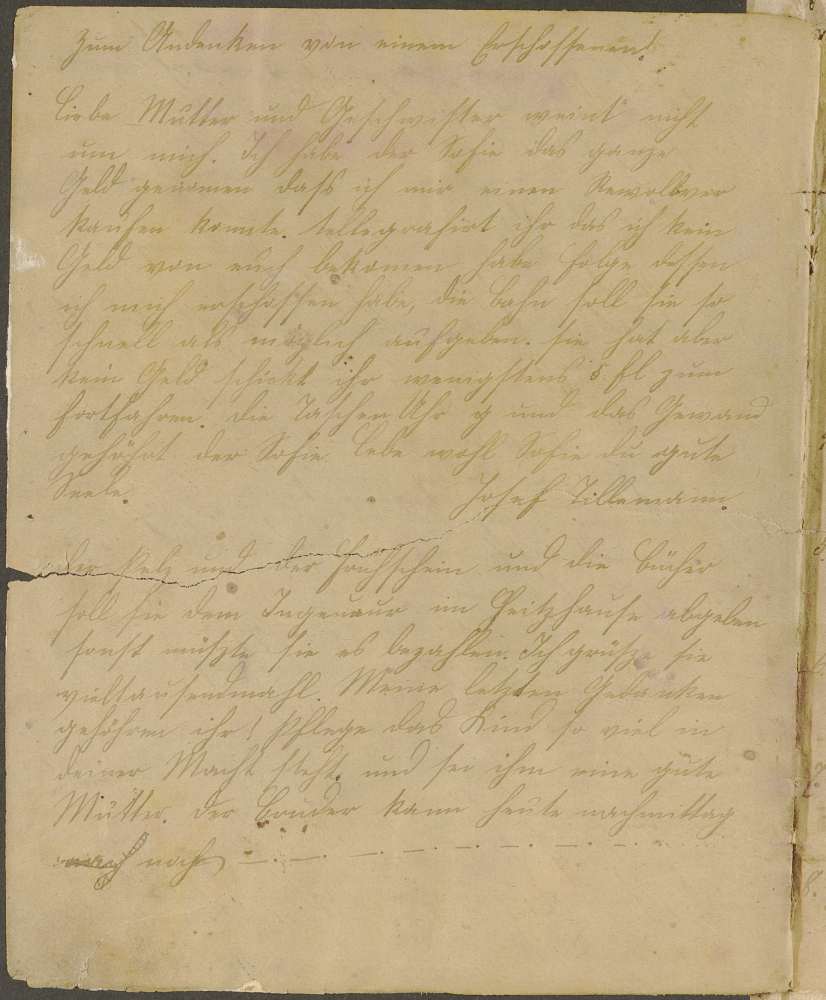 Zum Andenken von einem Erschossenen!
Liebe Mutter und Geschwister weint nicht
um mich. Ich habe der Sofie das ganze
Geld genomen dass ich mir einen Rewolbver
kaufen konnte. tellegrafirt ihr das ich kein
Geld von euch bekomen habe folge dessen
ich mich erschossen habe, die Bahn soll sie so
schnell als möglich aufgeben. sie hat aber
kein Geld schickt ihr wenigstens 5 fl zum
fortfahren. die Taschen Uhr und das Gewand
gehöhrt der Sofie. Lebe wohl Sofie du gute
Seele. Josef Tillemann
der Pelz und der und die Bücher
soll sie dem Ingeneur im abgeben
sonst müszte sie es bezahlen. Ich grüsze sie
vieltausendmahl. Meine letzten Gedanken
gehöhren ihr! Pflege das Kind so viel in
deiner Macht steht. und sei ihm eine gute
Mutter. der Bruder kann heute nachmittag
noch